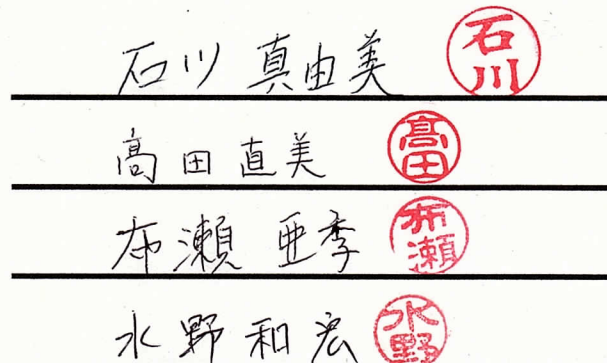 石川 真由美 石川
髙田直美 髙田
布瀬 亜季 布瀬
水野和宏 水野